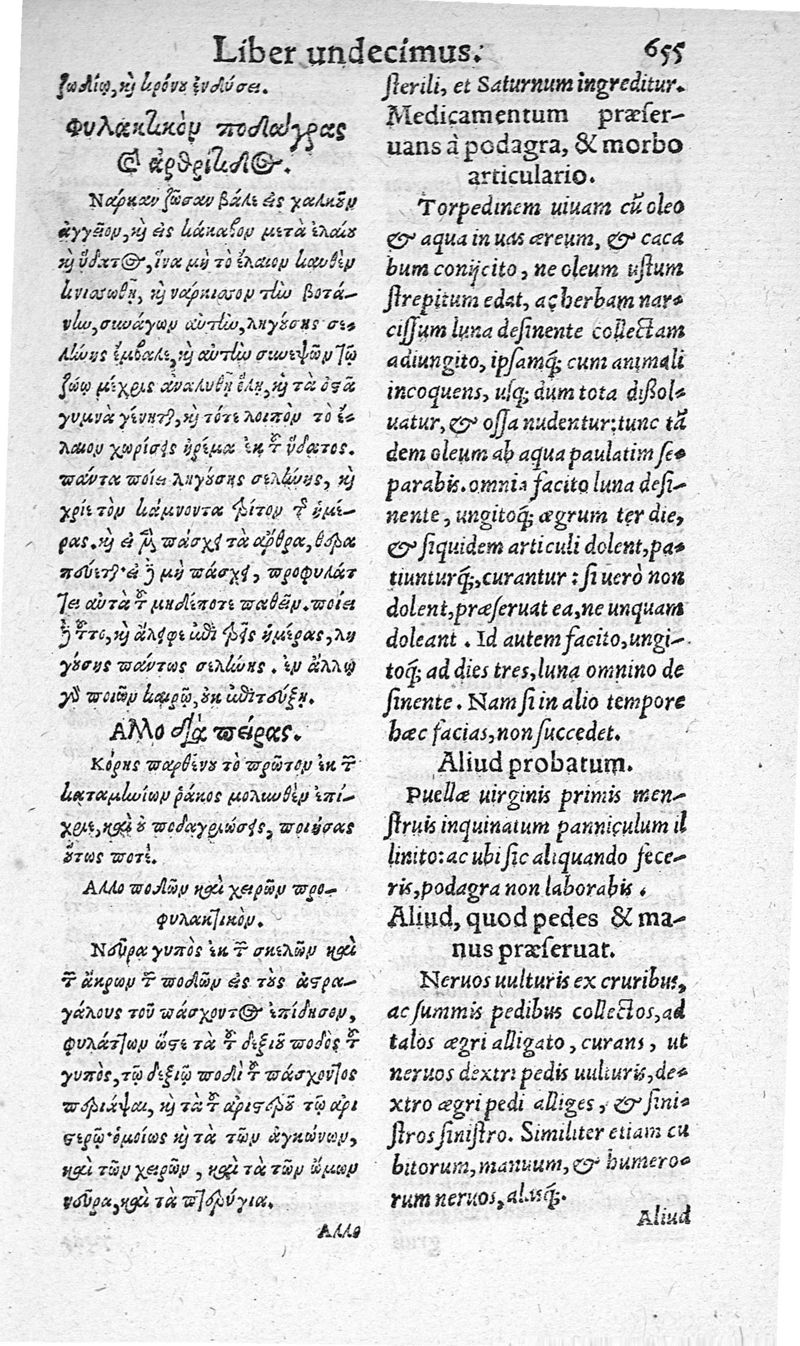 Liber undecimus. 655
ζωδίῳ, καὶ κρόνου ἐνδύσει.
Φυλακτικὸν ποδάγρας
καὶ ἀρθρίτιδος.
Νάρκαν ζῶσαν βάλε εἰς χαλκοῦν
ἀγγεῖον, καὶ εἰς κάκαβον μετὰ ἐλαίου
καὶ ὕδατος, ἵνα μὴ τὸ ἔλαιον καυθὲν
κνισωθῇ, καὶ νάρκισσον τὴν βοτά-
νην, συνάγων αὐτὴν, ληγούσης σε-
λήνης ἔμβαλε, καὶ αὐτὴν συνεψῶν τῷ
ζώῳ μέχρις ἀναλυθῇ ὅλη, καὶ τὰ ὀστᾶ
γυμνὰ γένηται, καὶ τότε λοιπὸν τὸ ἔ-
λαιον χωρίσῃς ἠρέμα ἐκ τοῦ ὕδατος.
πάντα ποίει ληγούσης σελήνης, καὶ
χρῖε τὸν κάμνοντα τρίτον τῆς ἡμέ-
ρας. καὶ εἰ μὲν πάσχῃ τὰ ἄρθρα, θερα
πεύεται· εἰ δὲ μὴ πάσχῃ, προφυλάτ
τει αὐτὰ τοῦ μηδέποτε παθεῖν. ποίει
δὲ τοῦτο, καὶ ἄλειφε ἐπὶ τρεῖς ἡμέρας, λη
γούσης πάντως σελήνης. ἐν ἄλλῳ
γὰρ ποιῶν καιρῷ, οὐκ ἐπιτεύξῃ.
Αλλο διὰ πείρας.
Κόρης παρθένου τὸ πρῶτον ἐκ τῶν
καταμηνίων ῥάκος μολυνθὲν ἐπί-
χριε, καὶ οὐ ποδαγριάσεις, ποιήσας
οὕτως ποτέ.
Αλλο ποδῶν καὶ χειρῶν προ-
φυλακτικόν.
Νεῦρα γυπὸς ἐκ τῶν σκελῶν καὶ
τῶν ἄκρων τῶν ποδῶν εἰς τοὺς ἀστρα-
γάλους τοῦ πάσχοντος ἐπίδησον,
φυλάττων ὥστε τὰ τοῦ δεξιοῦ ποδὸς τοῦ
γυπὸς, τῷ δεξιῷ ποδὶ τοῦ πάσχοντος
περιάψαι, καὶ τὰ τοῦ ἀριστεροῦ τῷ ἀρι
στερῷ· ὁμοίως καὶ τὰ τῶν ἀγκώνων,
καὶ τῶν χειρῶν, καὶ τὰ τῶν ὤμων
νεῦρα, καὶ τὰ πτερύγια.
Αλλο
sterili, et Saturnum ingreditur.
Medicamentum præser-
uans à podagra, & morbo
articulario.
Torpedinem uiuam cũ oleo
& aqua in uas æreum, & caca
bum conijcito, ne oleum ustum
strepitum edat, ac herbam nar-
cissum luna desinente collectam
adiungito, ipsamq́; cum animali
incoquens, usq; dum tota dissol-
uatur, & ossa nudentur: tunc tã
dem oleum ab aqua paulatim se-
parabis. omnia facito luna desi-
nente, ungitoq́; ægrum ter die,
& siquidem articuli dolent, pa-
tiunturq́;, curantur: si uerò non
dolent, præseruat ea, ne unquam
doleant. Id autem facito, ungi-
toq́; ad dies tres, luna omnino de
sinente. Nam si in alio tempore
hæc facias, non succedet.
Aliud probatum.
Puellæ uirginis primis men-
struis inquinatum panniculum il
linito: ac ubi sic aliquando fece-
ris, podagra non laborabis.
Aliud, quod pedes & ma-
nus præseruat.
Neruos uulturis ex cruribus,
ac summis pedibus collectos, ad
talos ægri alligato, curans, ut
neruos dextri pedis uulturis, de-
xtro ægri pedi alliges, & sini-
stros sinistro. Similiter etiam cu
bitorum, manuum, & humero-
rum neruos, alasq́;.
Aliud